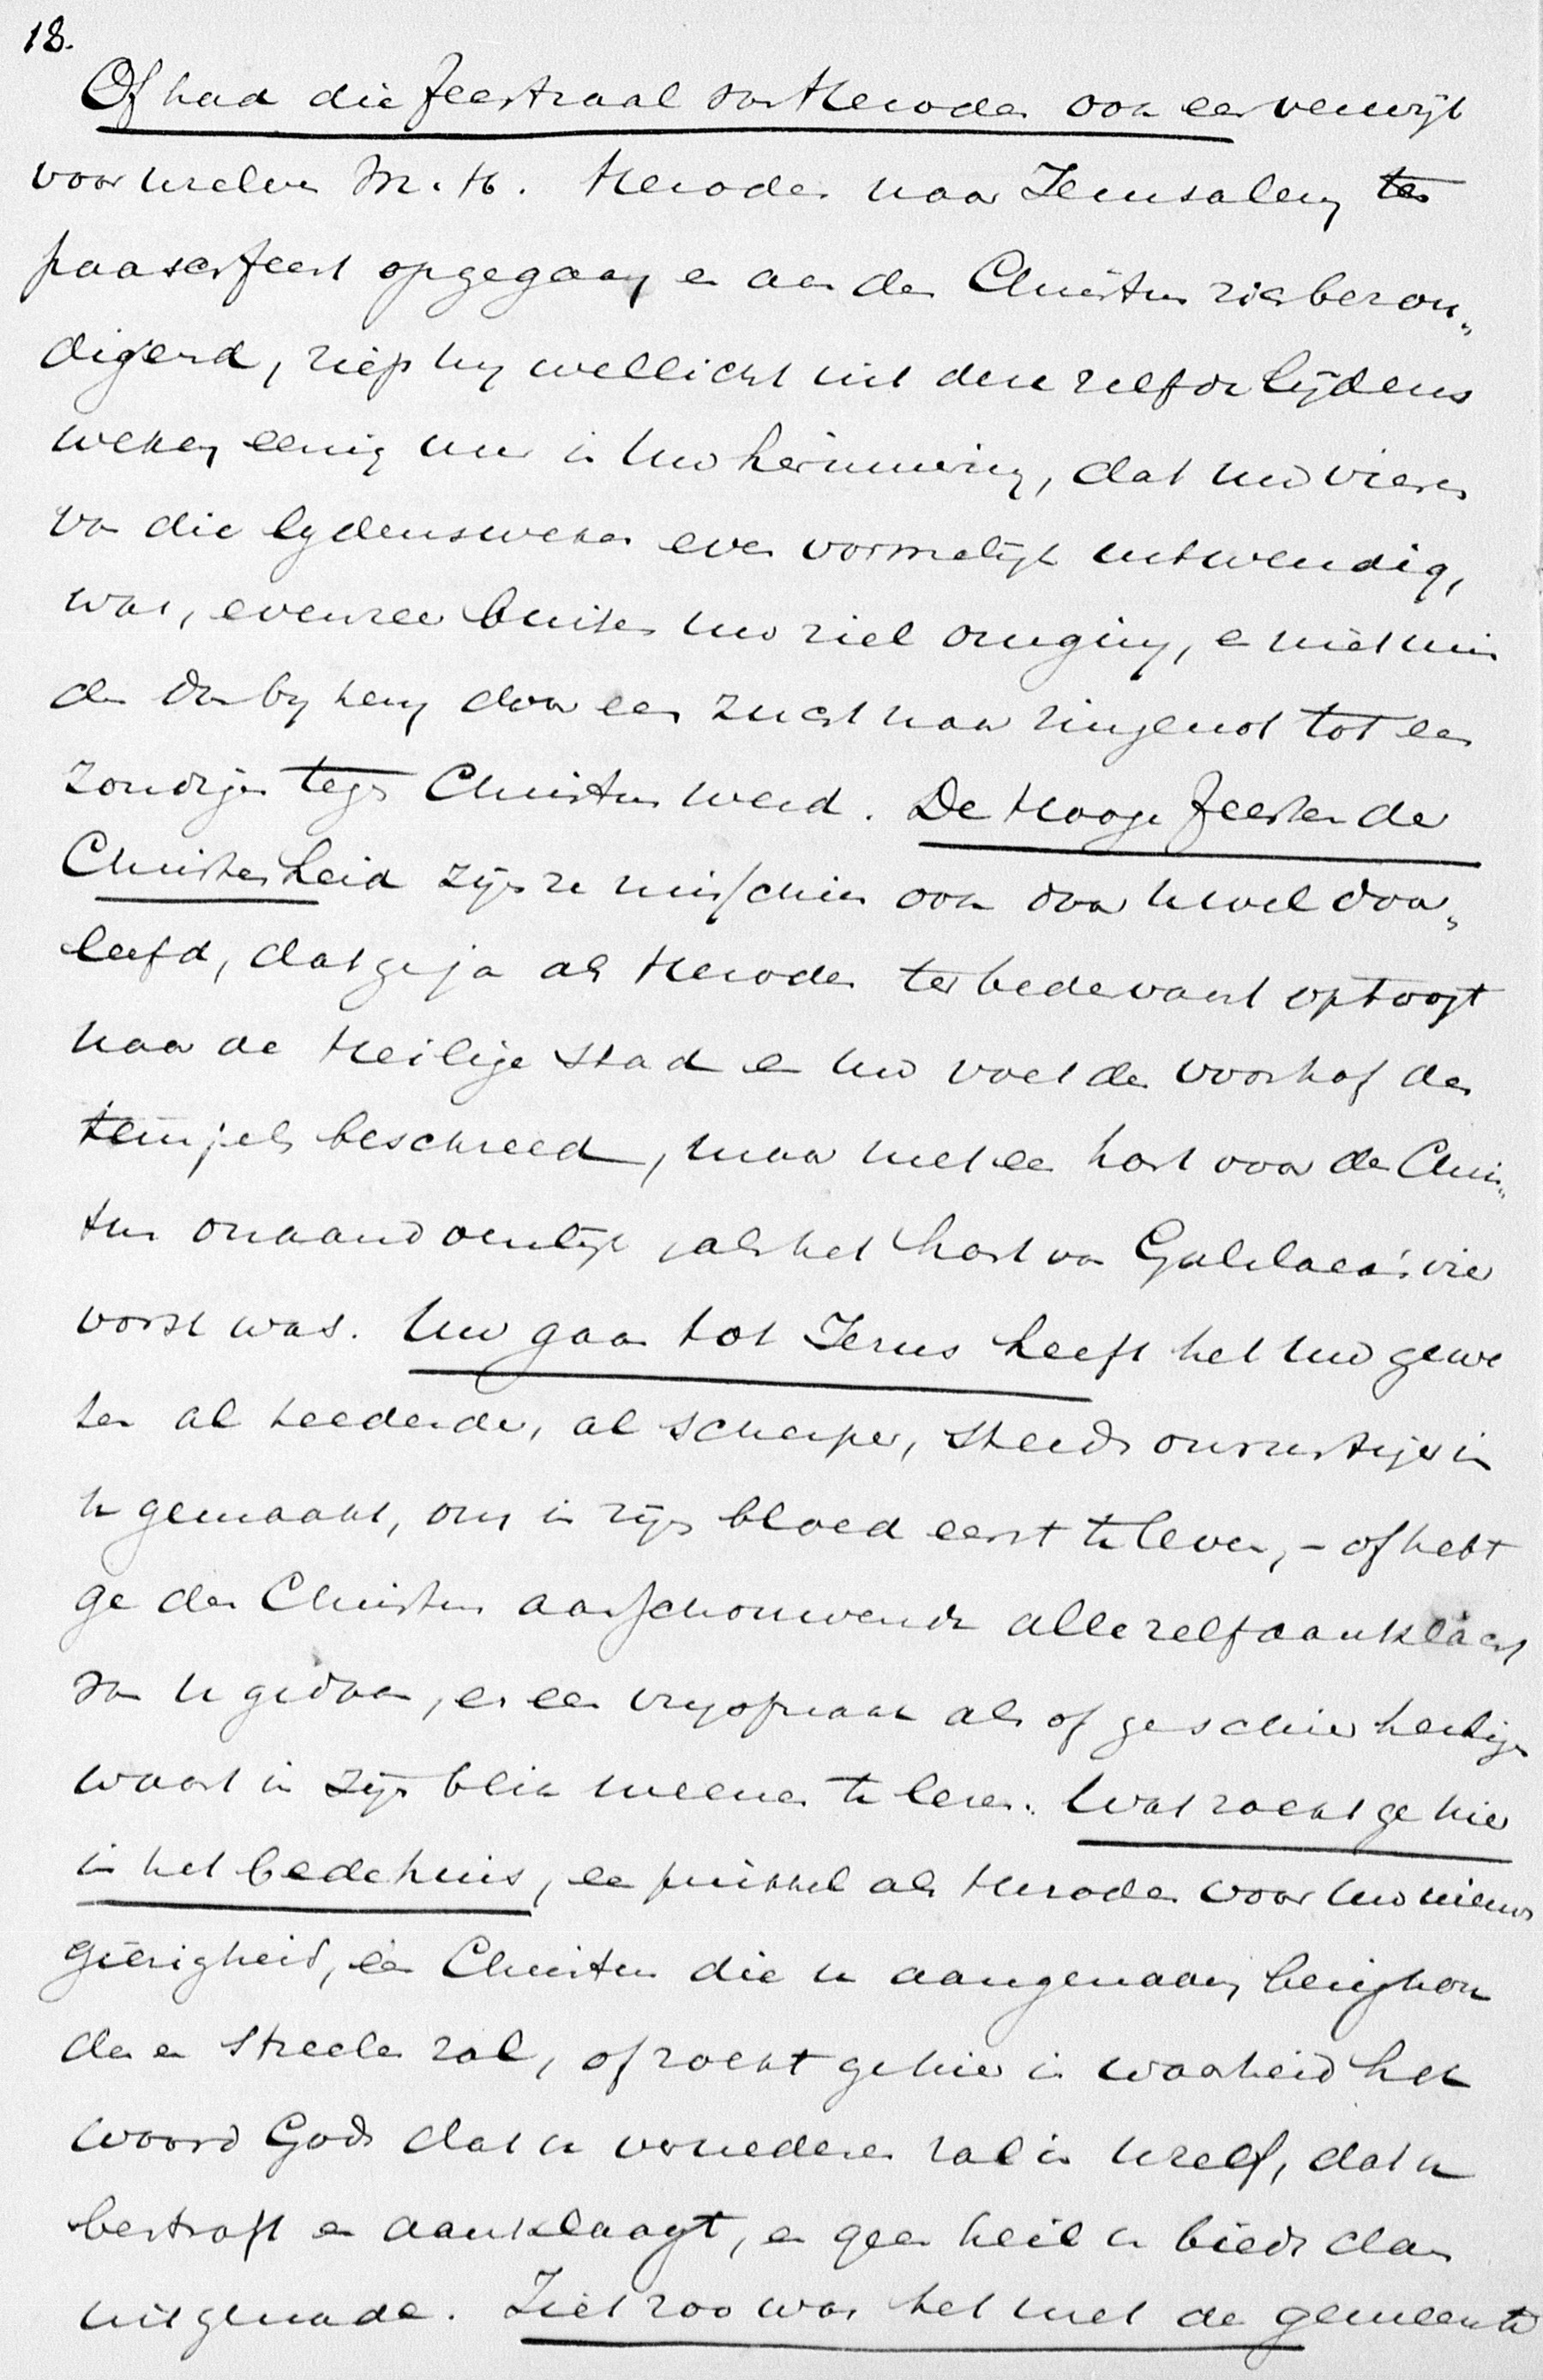 18.
Of had die feestzaal van Herodes ook een verwijt
voor uzelven M. H. Herodes naar Jerusalem ten
paaschfeest opgegaan en aan den Christus zich bezon„
digend, riep hij wellicht uit deze zelfde lijdens
weken eenig uur in Uw herinnering, dat uw vieren
van die lijdensweken even vormelijk uitwendig,
was, evenzeer buiten uw ziel omging, en niet min
der dan bij hem door een zucht naar zingenot tot een
zondigen tegen Christus werd. De Hooge feesten der
Christenheid zijn ze misschien ook door U wel door„
leefd, dat ge ja als Herodes ter bedevaart optoogt
naar de Heilige Stad en Uw voet den voorhof des
tempels beschreed, maar met een hart voor den Chris„
tus onaandoenlijk als het hart van Galilaea's vier
vorst was. Uw gaan tot Jezus heeft het Uw gewe
ten al teederder, al scherper, steeds onrustiger in
U gemaakt, om in zijn bloed eerst te leven, – of hebt
ge den Christus aanschouwende alle zelfaanklacht
van U gedaan, en een vrijspraak als of ge schier heilig
waart in zijn blik meenen te lezen. Wat zoekt ge hier
in het bedehuis, een prikkel als Herodes voor Uw nieuws
gierigheid, een Christus die u aangenaam bezighou
den en streelen zal, of zoekt ge hier in waarheid het
woord Gods dat u vernederen zal in Uzelf, dat u
bestraft en aanklaagt, en geen heil u biedt dan
uit genade. Ziet zoo was het met de gemeente